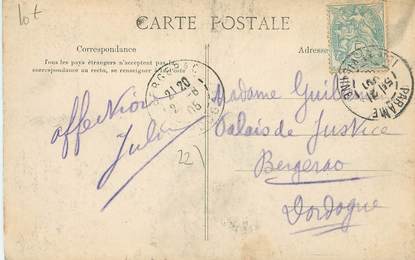 lot
CARTE POSTALE
Correspondance
Tous les pays étrangers n'acceptent pas la
correspondance au recto, se renseigner à la Poste
Adresse
affection
Madame
Palais de Justice
Bergerac
Dordogne
PARAMÉ
21 20
22